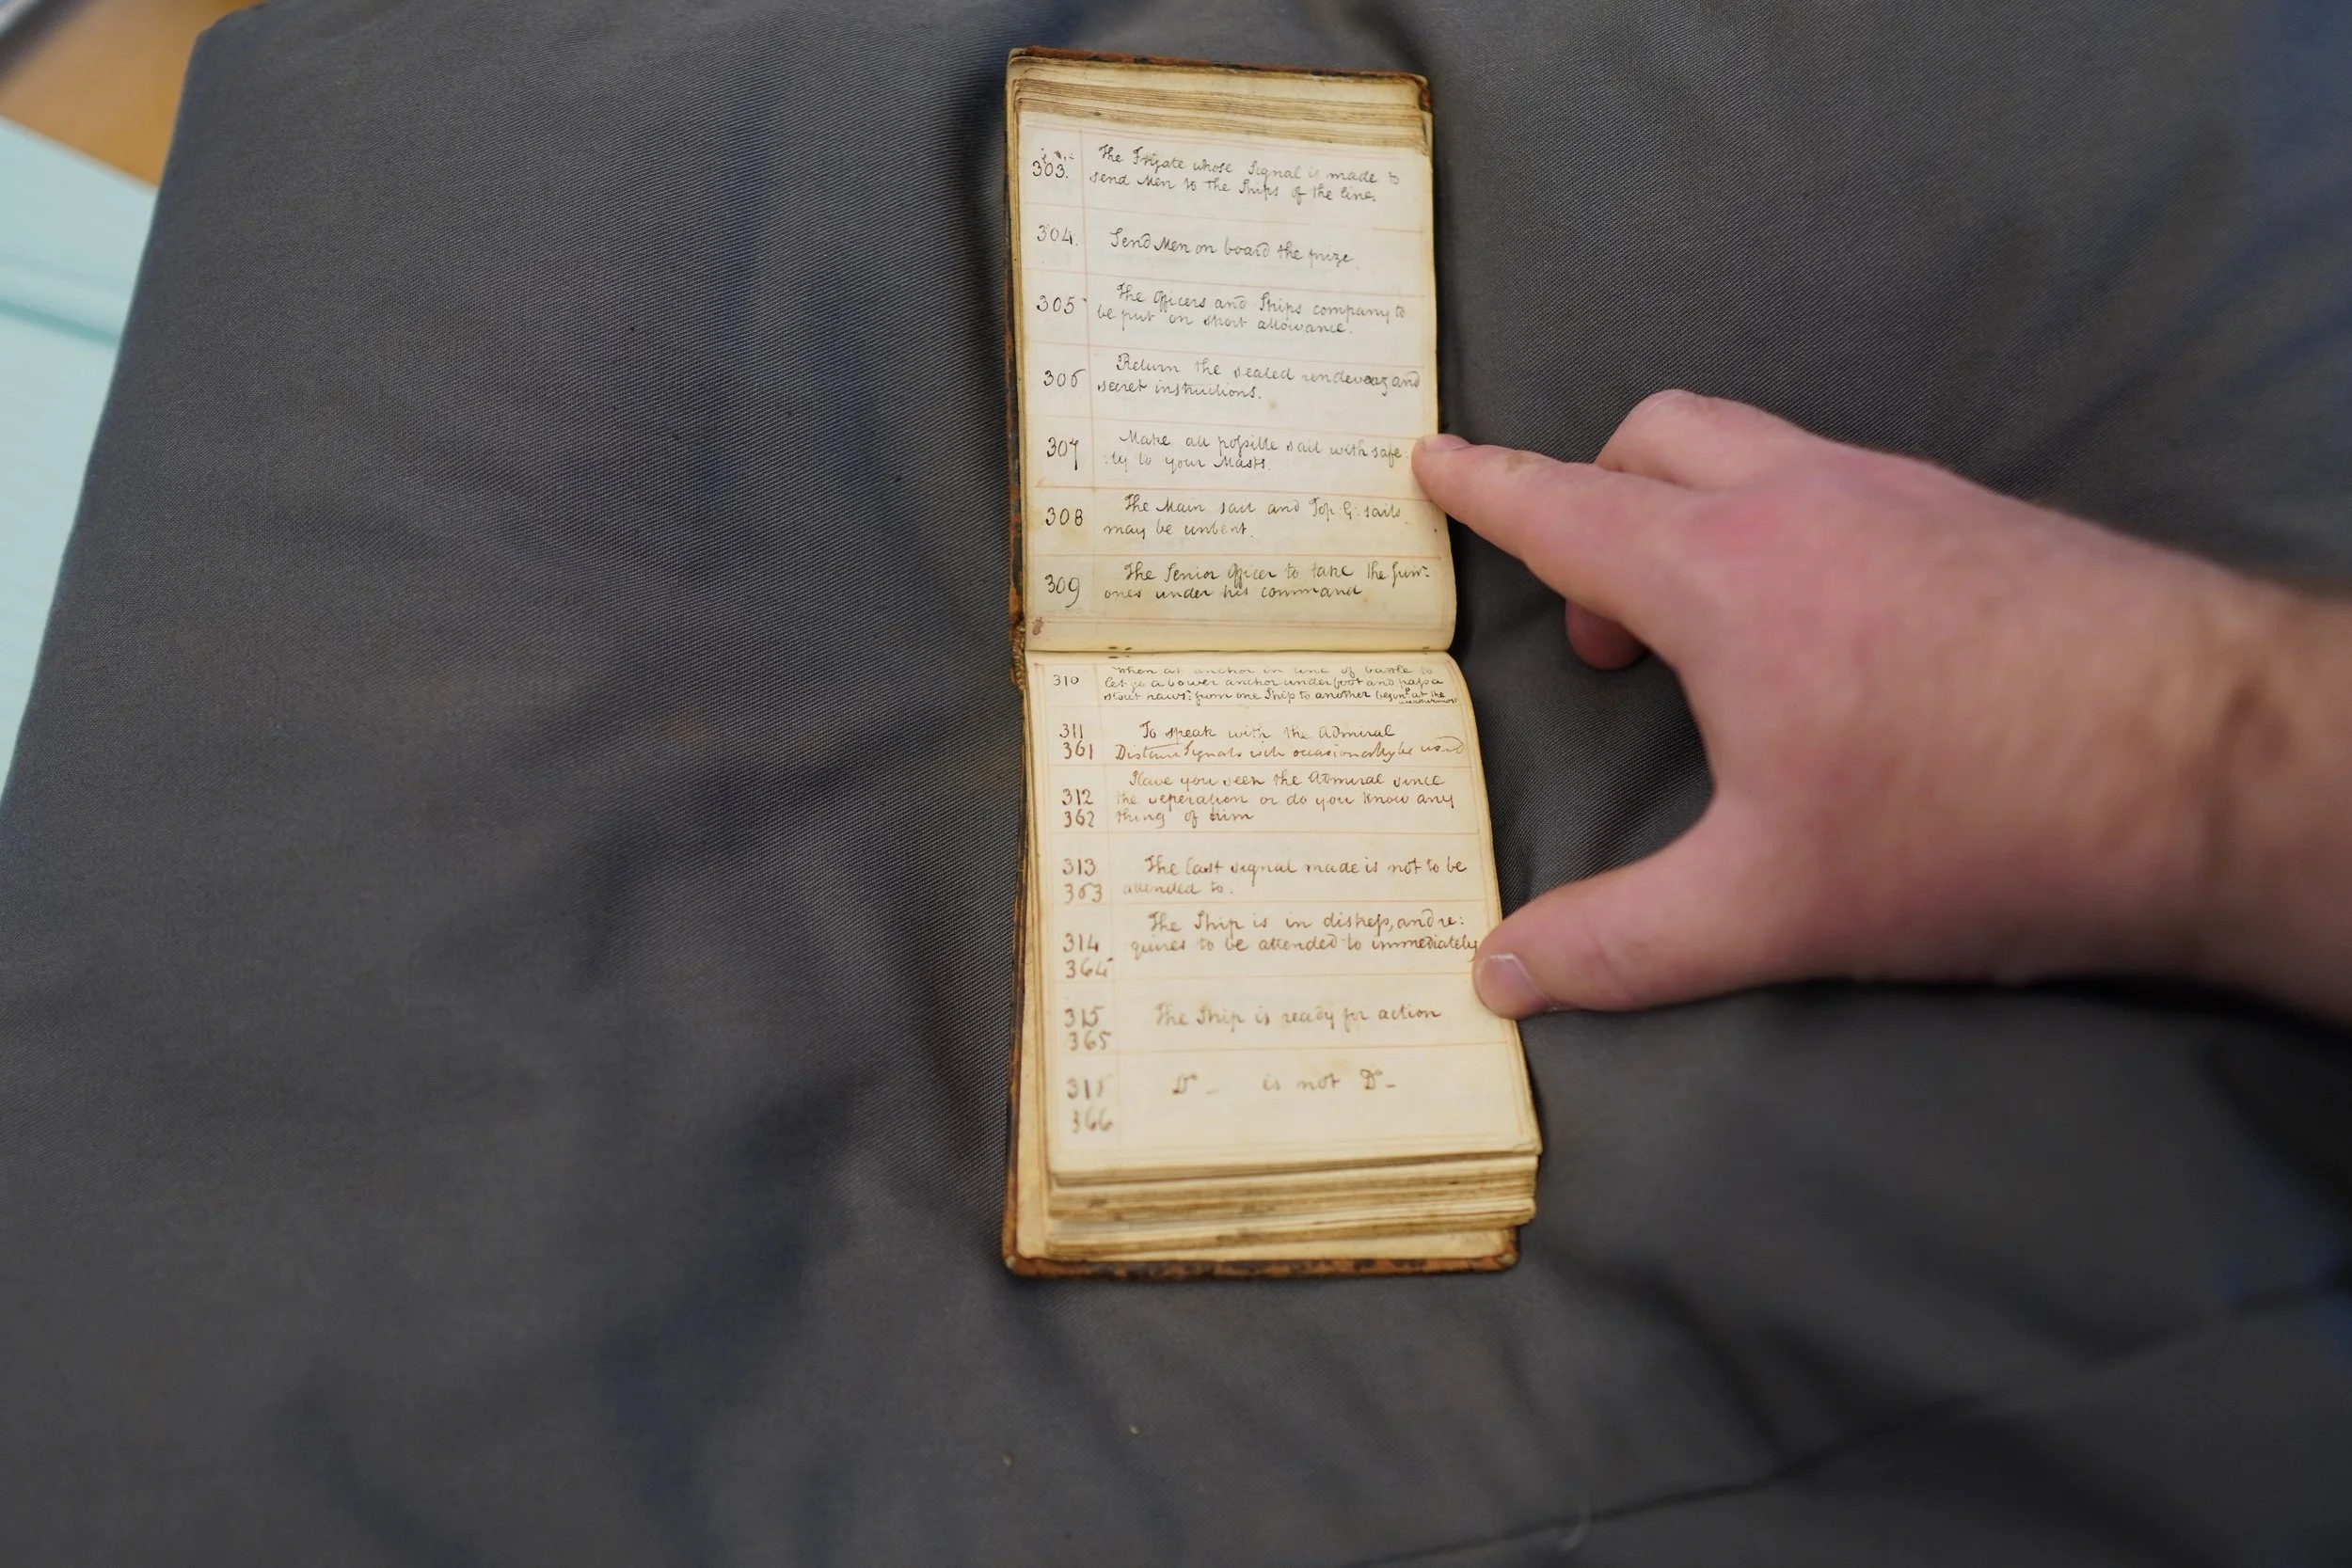 303. The Frigate whose Signal is made to
send Men to the Ships of the line.
304. Send Men on board the prize
305 The Officers and Ships company to
be put on short allowance.
306 Return the sealed rendevouz and
secret instructions.
307 Make all poſsible sail with safe:
:ty to your Masts.
308 The Main sail and Top G: sails
may be unbent.
309 The Senior Officer to take the Jun:
ones under his command
310 When at anchor in line of battle to
let go a bower anchor underfoot and paſs a
stout haws: from one Ship to another begin.g at the
weathermost
311 To speak with the Admiral
361 Distant Signals will occasionally be used
Have you seen the Admiral since
312 the seperation or do you know any
362 thing of him
313 The last signal made is not to be
363 attended to.
The Ship is in distreſs, and re:
314 quires to be attended to immediately
364
315 The Ship is ready for action
365
316 Do _ is not Do _
366